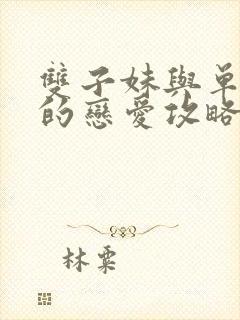 雙子妹與單
的戀愛攻略
林粟